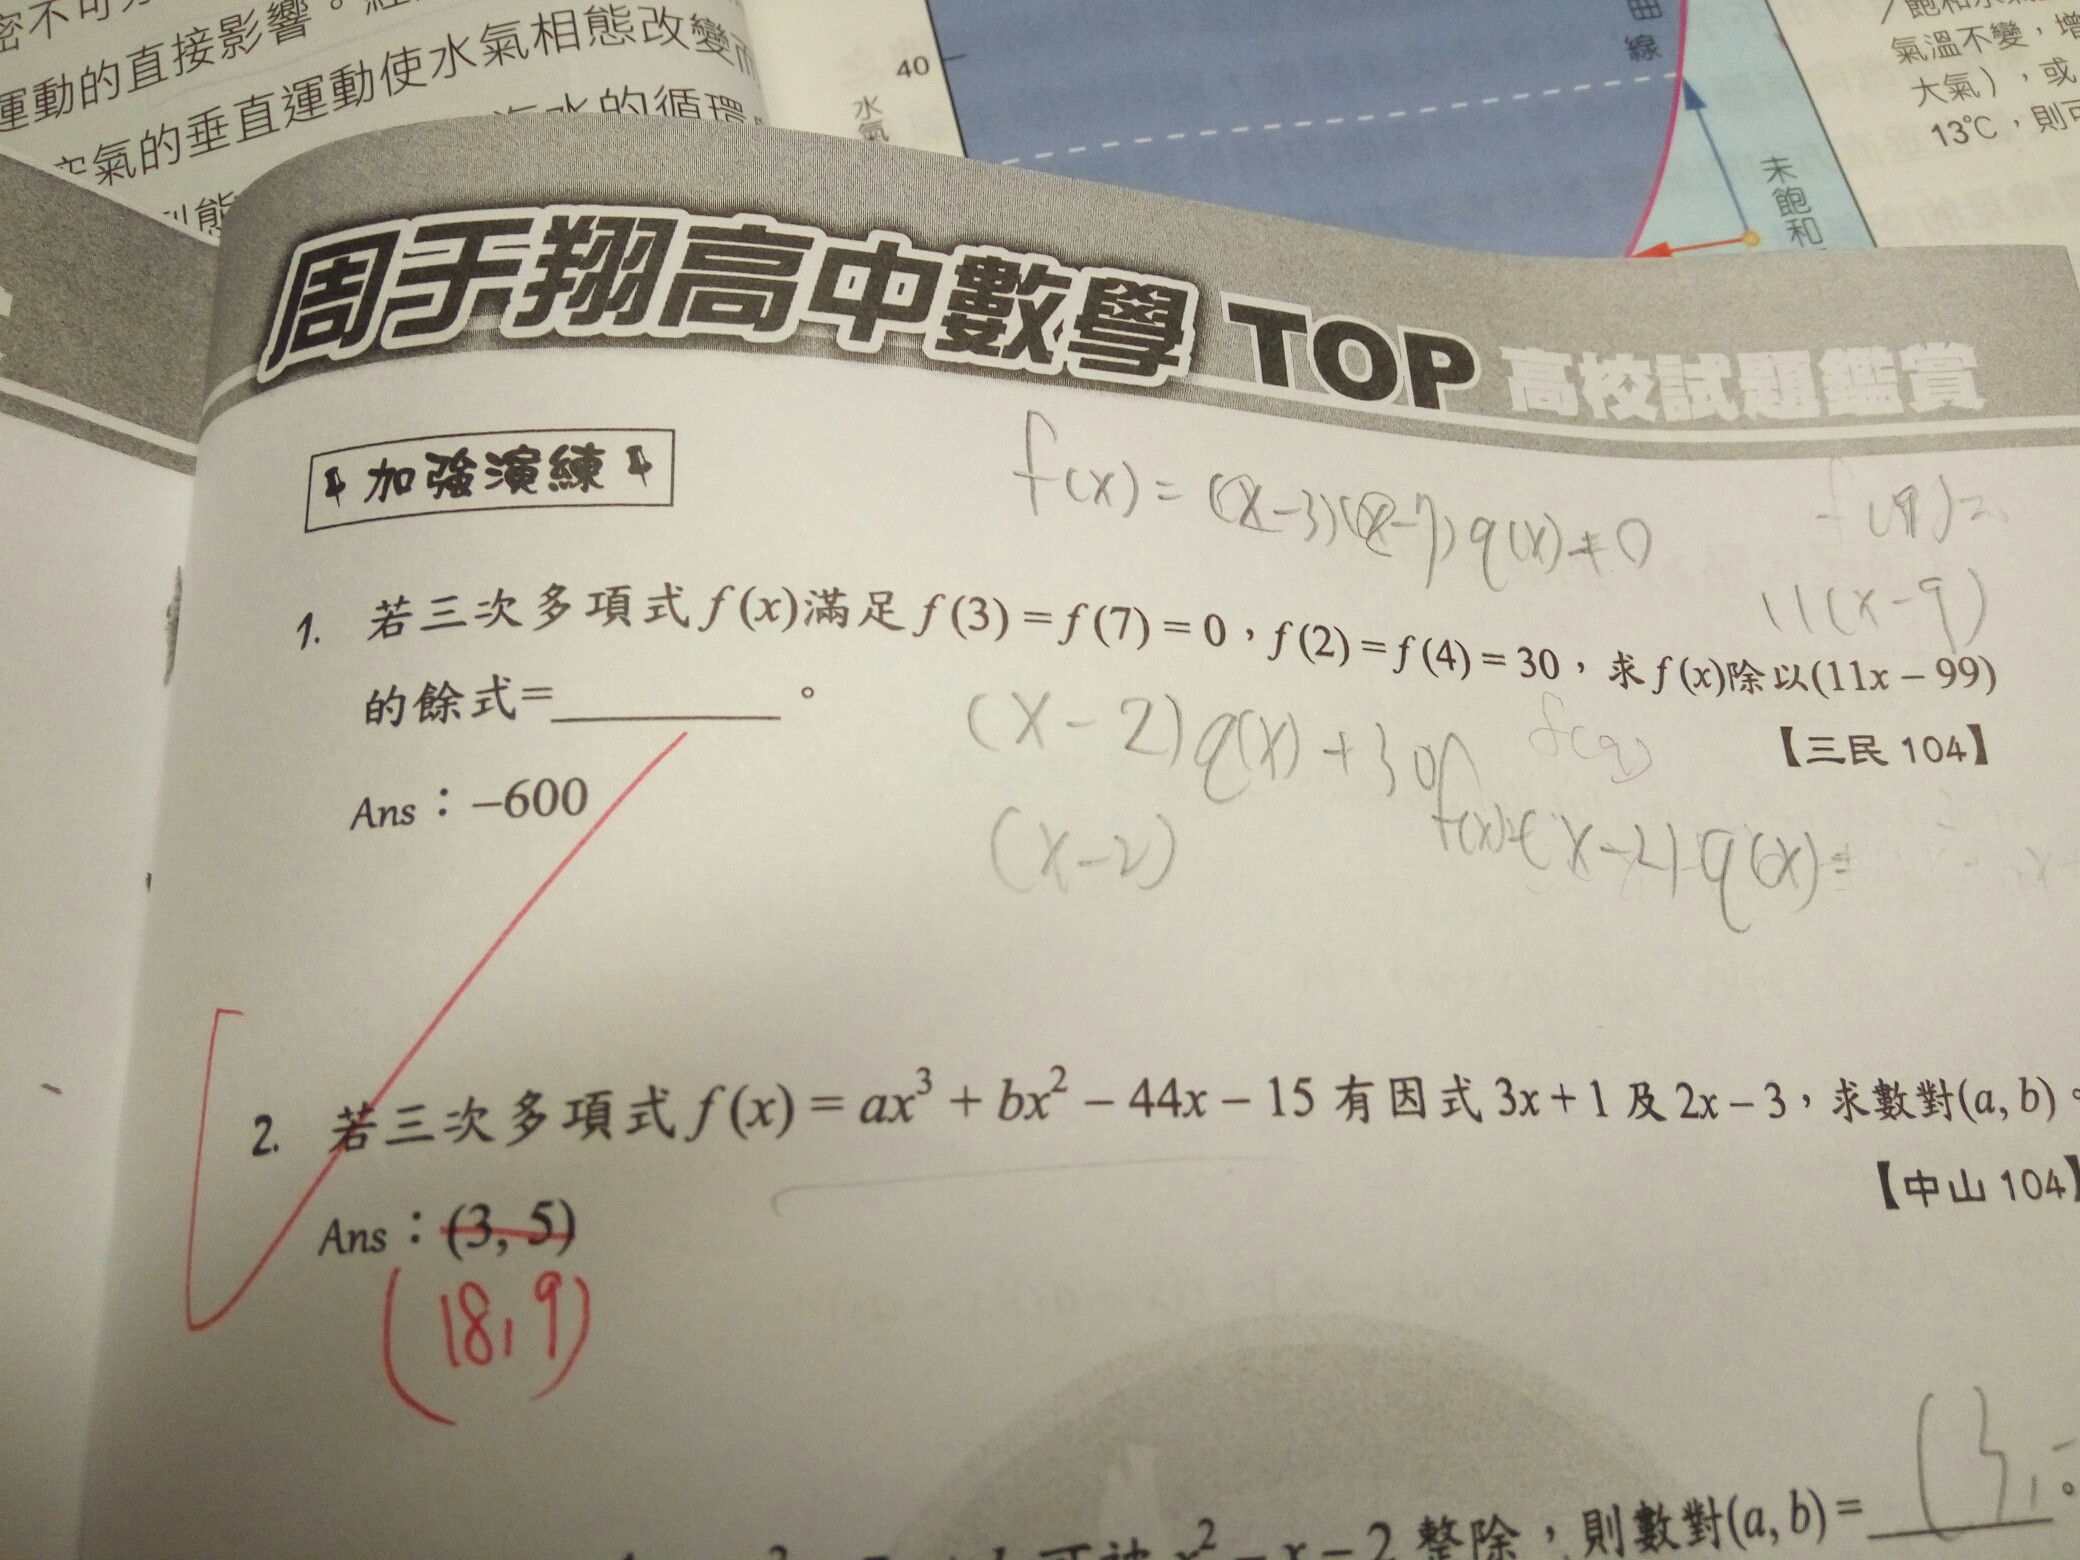 運動的直接影響。
空氣的垂直運動使水氣相態改變而
海水的循環
40
水氣
曲線
未飽和
飽和水氣
氣溫不變，增
大氣），或
13℃，則可
周于翔高中數學 TOP 高校試題鑑賞
加強演練
f(x) = (x-3)(x-7)q(x)+0
f(9)=
11(x-9)
1. 若三次多項式 f(x)滿足 f(3) = f(7) = 0，f(2) = f(4) = 30，求 f(x)除以(11x – 99)
的餘式=________。
(x-2)q(x)+30
f(9)
【三民 104】
Ans：–600
(x-2)
f(x)=(x-2)q(x)=
2. 若三次多項式 f(x) = ax³ + bx² – 44x – 15 有因式 3x + 1 及 2x – 3，求數對(a, b)。
【中山 104】
Ans：(3, 5)
(18,9)
(3,
x² – x – 2 整除，則數對(a, b) = ________。